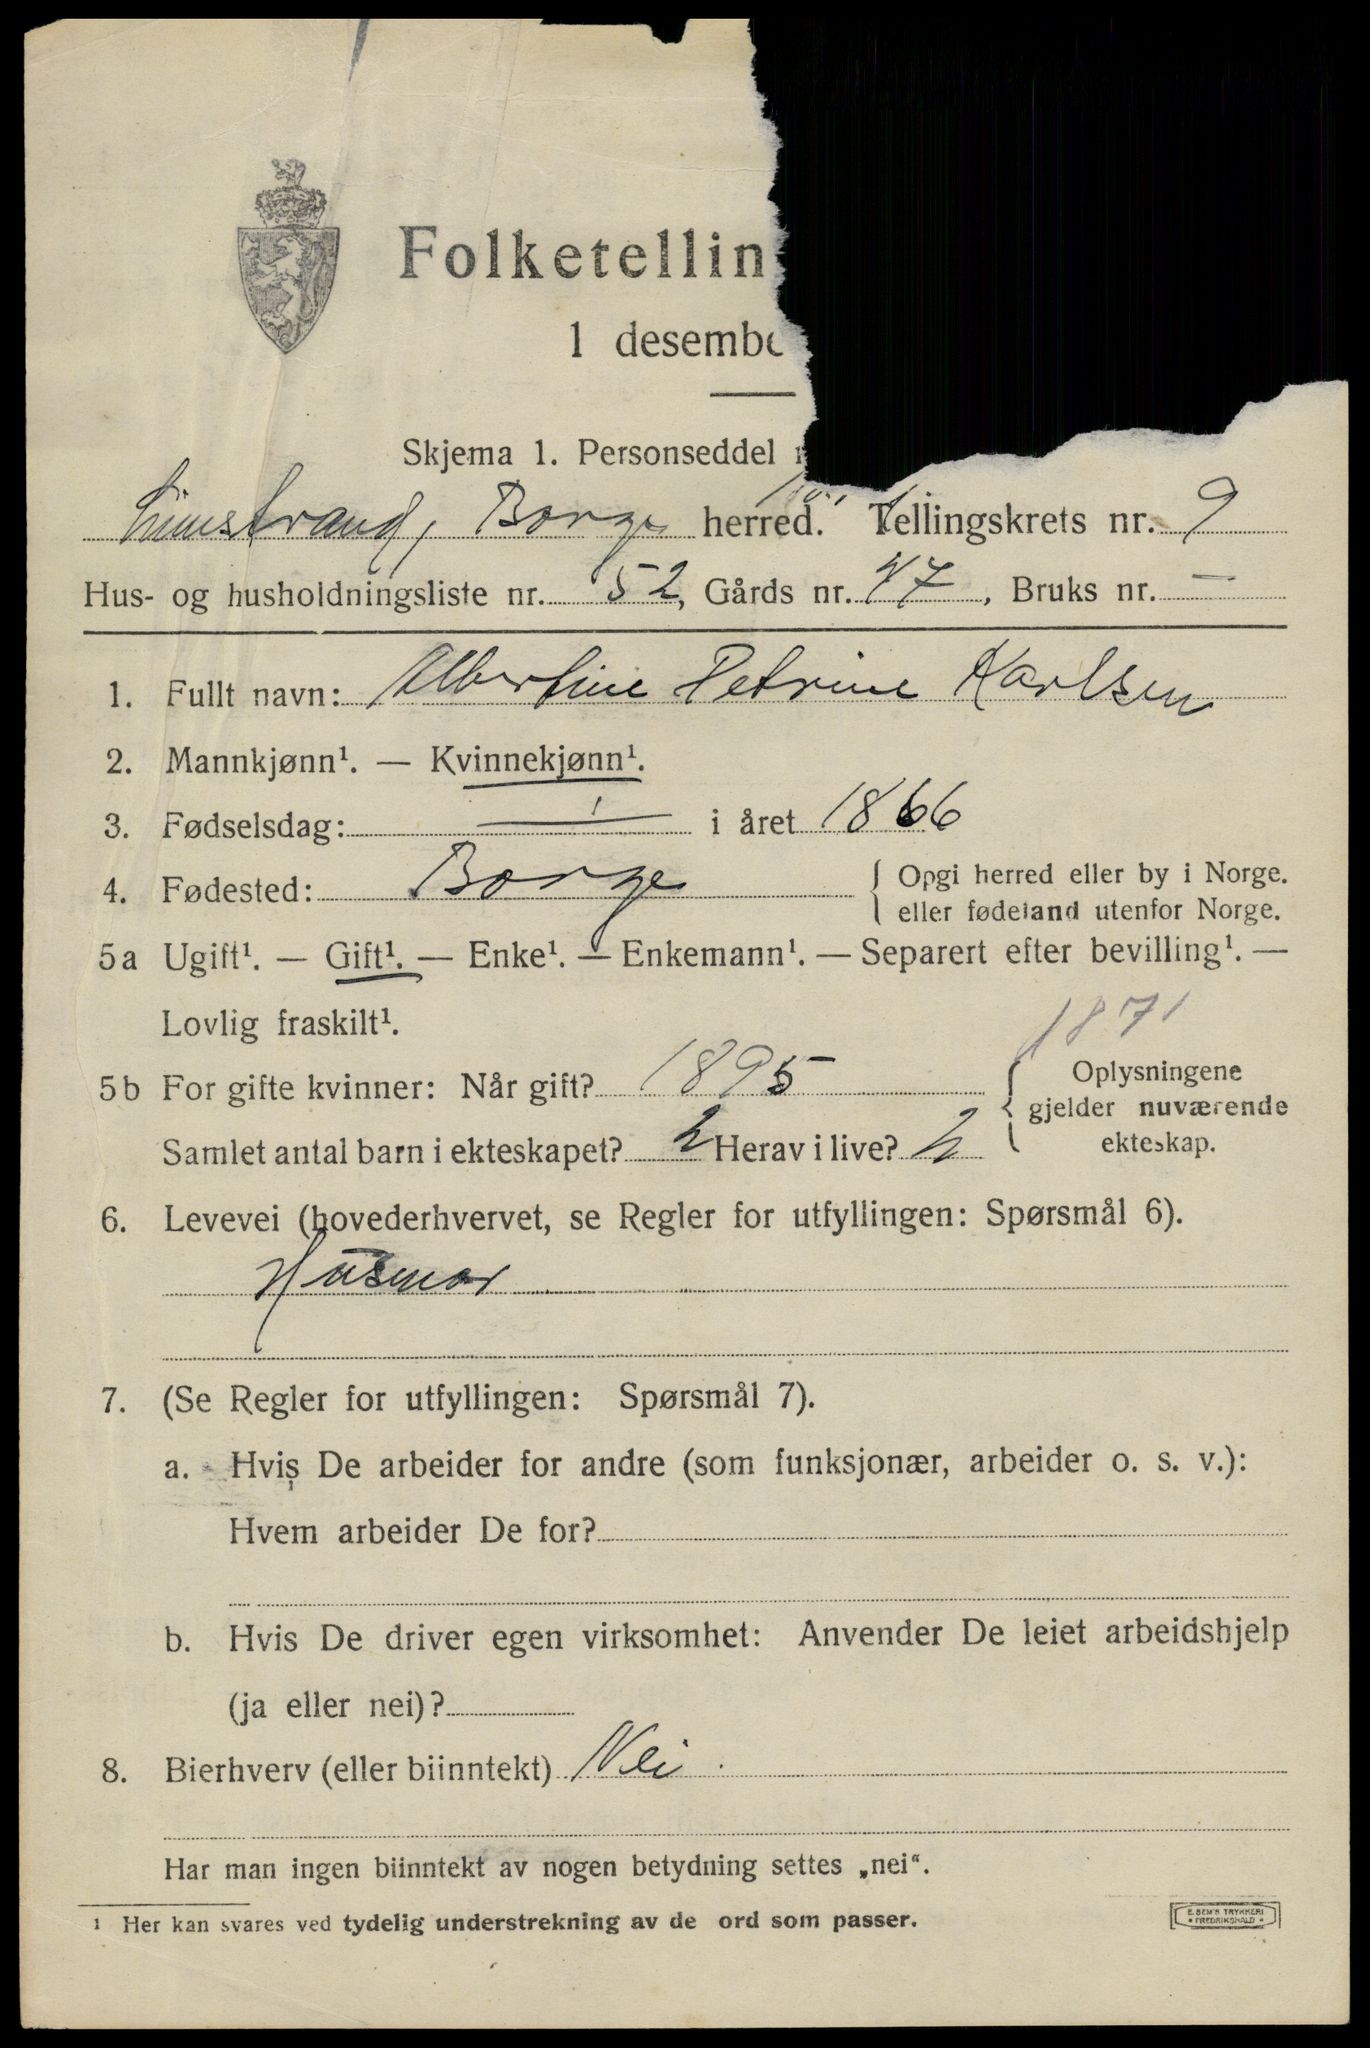 Folketellin
1 desembe
Skjema 1. Personseddel
Borge herred. Tellingskrets nr. 9
Hus- og husholdningsliste nr. 52, Gårds nr. 47, Bruks nr. —
1. Fullt navn: Albertine Petrine Karlsen
2. Mannkjønn¹. — Kvinnekjønn¹.
3. Fødselsdag: — i året 1866
4. Fødested: Borge { Opgi herred eller by i Norge.
eller fødeland utenfor Norge.
5a Ugift¹. — Gift¹. — Enke¹. — Enkemann¹. — Separert efter bevilling¹. —
Lovlig fraskilt¹.
1871
5b For gifte kvinner: Når gift? 1895 { Oplysningene
gjelder nuværende
ekteskap.
Samlet antal barn i ekteskapet? 2 Herav i live? 2
6. Levevei (hovederhvervet, se Regler for utfyllingen: Spørsmål 6).
Husmor
7. (Se Regler for utfyllingen: Spørsmål 7).
a. Hvis De arbeider for andre (som funksjonær, arbeider o. s. v.):
Hvem arbeider De for?
b. Hvis De driver egen virksomhet: Anvender De leiet arbeidshjelp
(ja eller nei)?
8. Bierhverv (eller biinntekt) Nei.
Har man ingen biinntekt av nogen betydning settes „nei“.
¹ Her kan svares ved tydelig understrekning av de ord som passer.
E. SEM'S TRYKKERI
• FREDRIKSHALD •